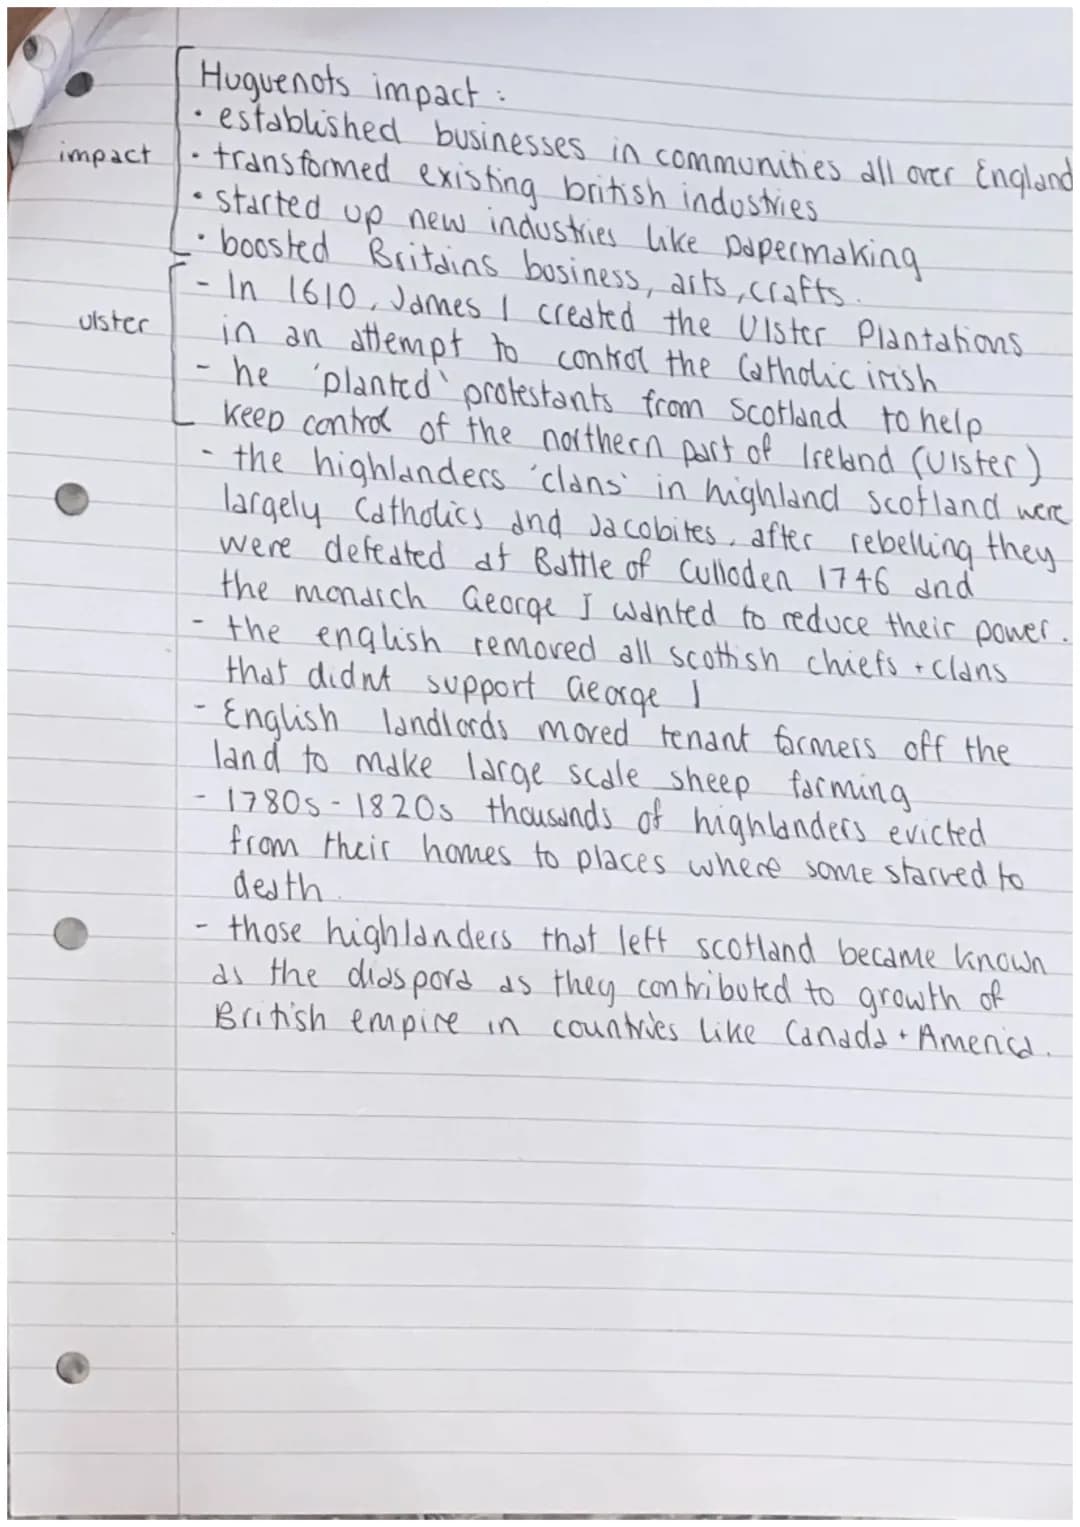 Huguenots impact :
• established businesses in communities all over England
impact
• transformed existing british industries
• started up new industries like papermaking
• boosted Britains business, arts, crafts.
- In 1610, James I created the Ulster Plantations
ulster
in an attempt to control the Catholic irish
- he 'planted' protestants from Scotland to help
keep control of the northern part of Ireland (Ulster)
- the highlanders 'clans' in highland scotland were
largely Catholics and Jacobites, after rebelling they
were defeated at Battle of Culloden 1746 and
the monarch George I wanted to reduce their power.
- the english removed all scottish chiefs + clans
that didnt support George I
- English landlords moved tenant farmers off the
land to make large scale sheep farming
- 1780s - 1820s thousands of highlanders evicted
from their homes to places where some starved to
death.
- those highlanders that left scotland became known
as the diaspora as they contributed to growth of
British empire in countries like Canada + America.